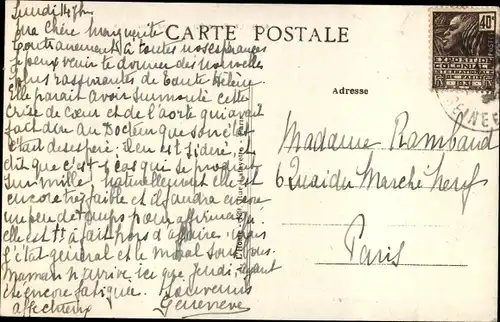 Lundi 14h
Ma Chère Marguerite
CARTE POSTALE
Contrairement à toutes nos espérances
je peux venir te donner des nouvelles
plus rassurantes de Tante Hélène
Elle paraît avoir surmonté cette
crise de cœur et de l'aorte qui avait
fait dire au Docteur que son
état désespéré. Il en est sidéré, il
dit que c'est 1 cas qui se produit
sur mille, naturellement elle est
encore très faible et il faudra encore
un peu de temps pour affirmer
elle est tt à fait hors d'affaire, mais
l'état général et le moral sont bons.
Maman n'arrive ici que jeudi, étant
encore fatiguée. Souvenirs
affectueux Geneviève
Adresse
Madame Rambaud
6 Quai du Marché Neuf
Paris
40c
EXPOSITION
COLONIALE
INTERNATIONALE
PARIS 1931